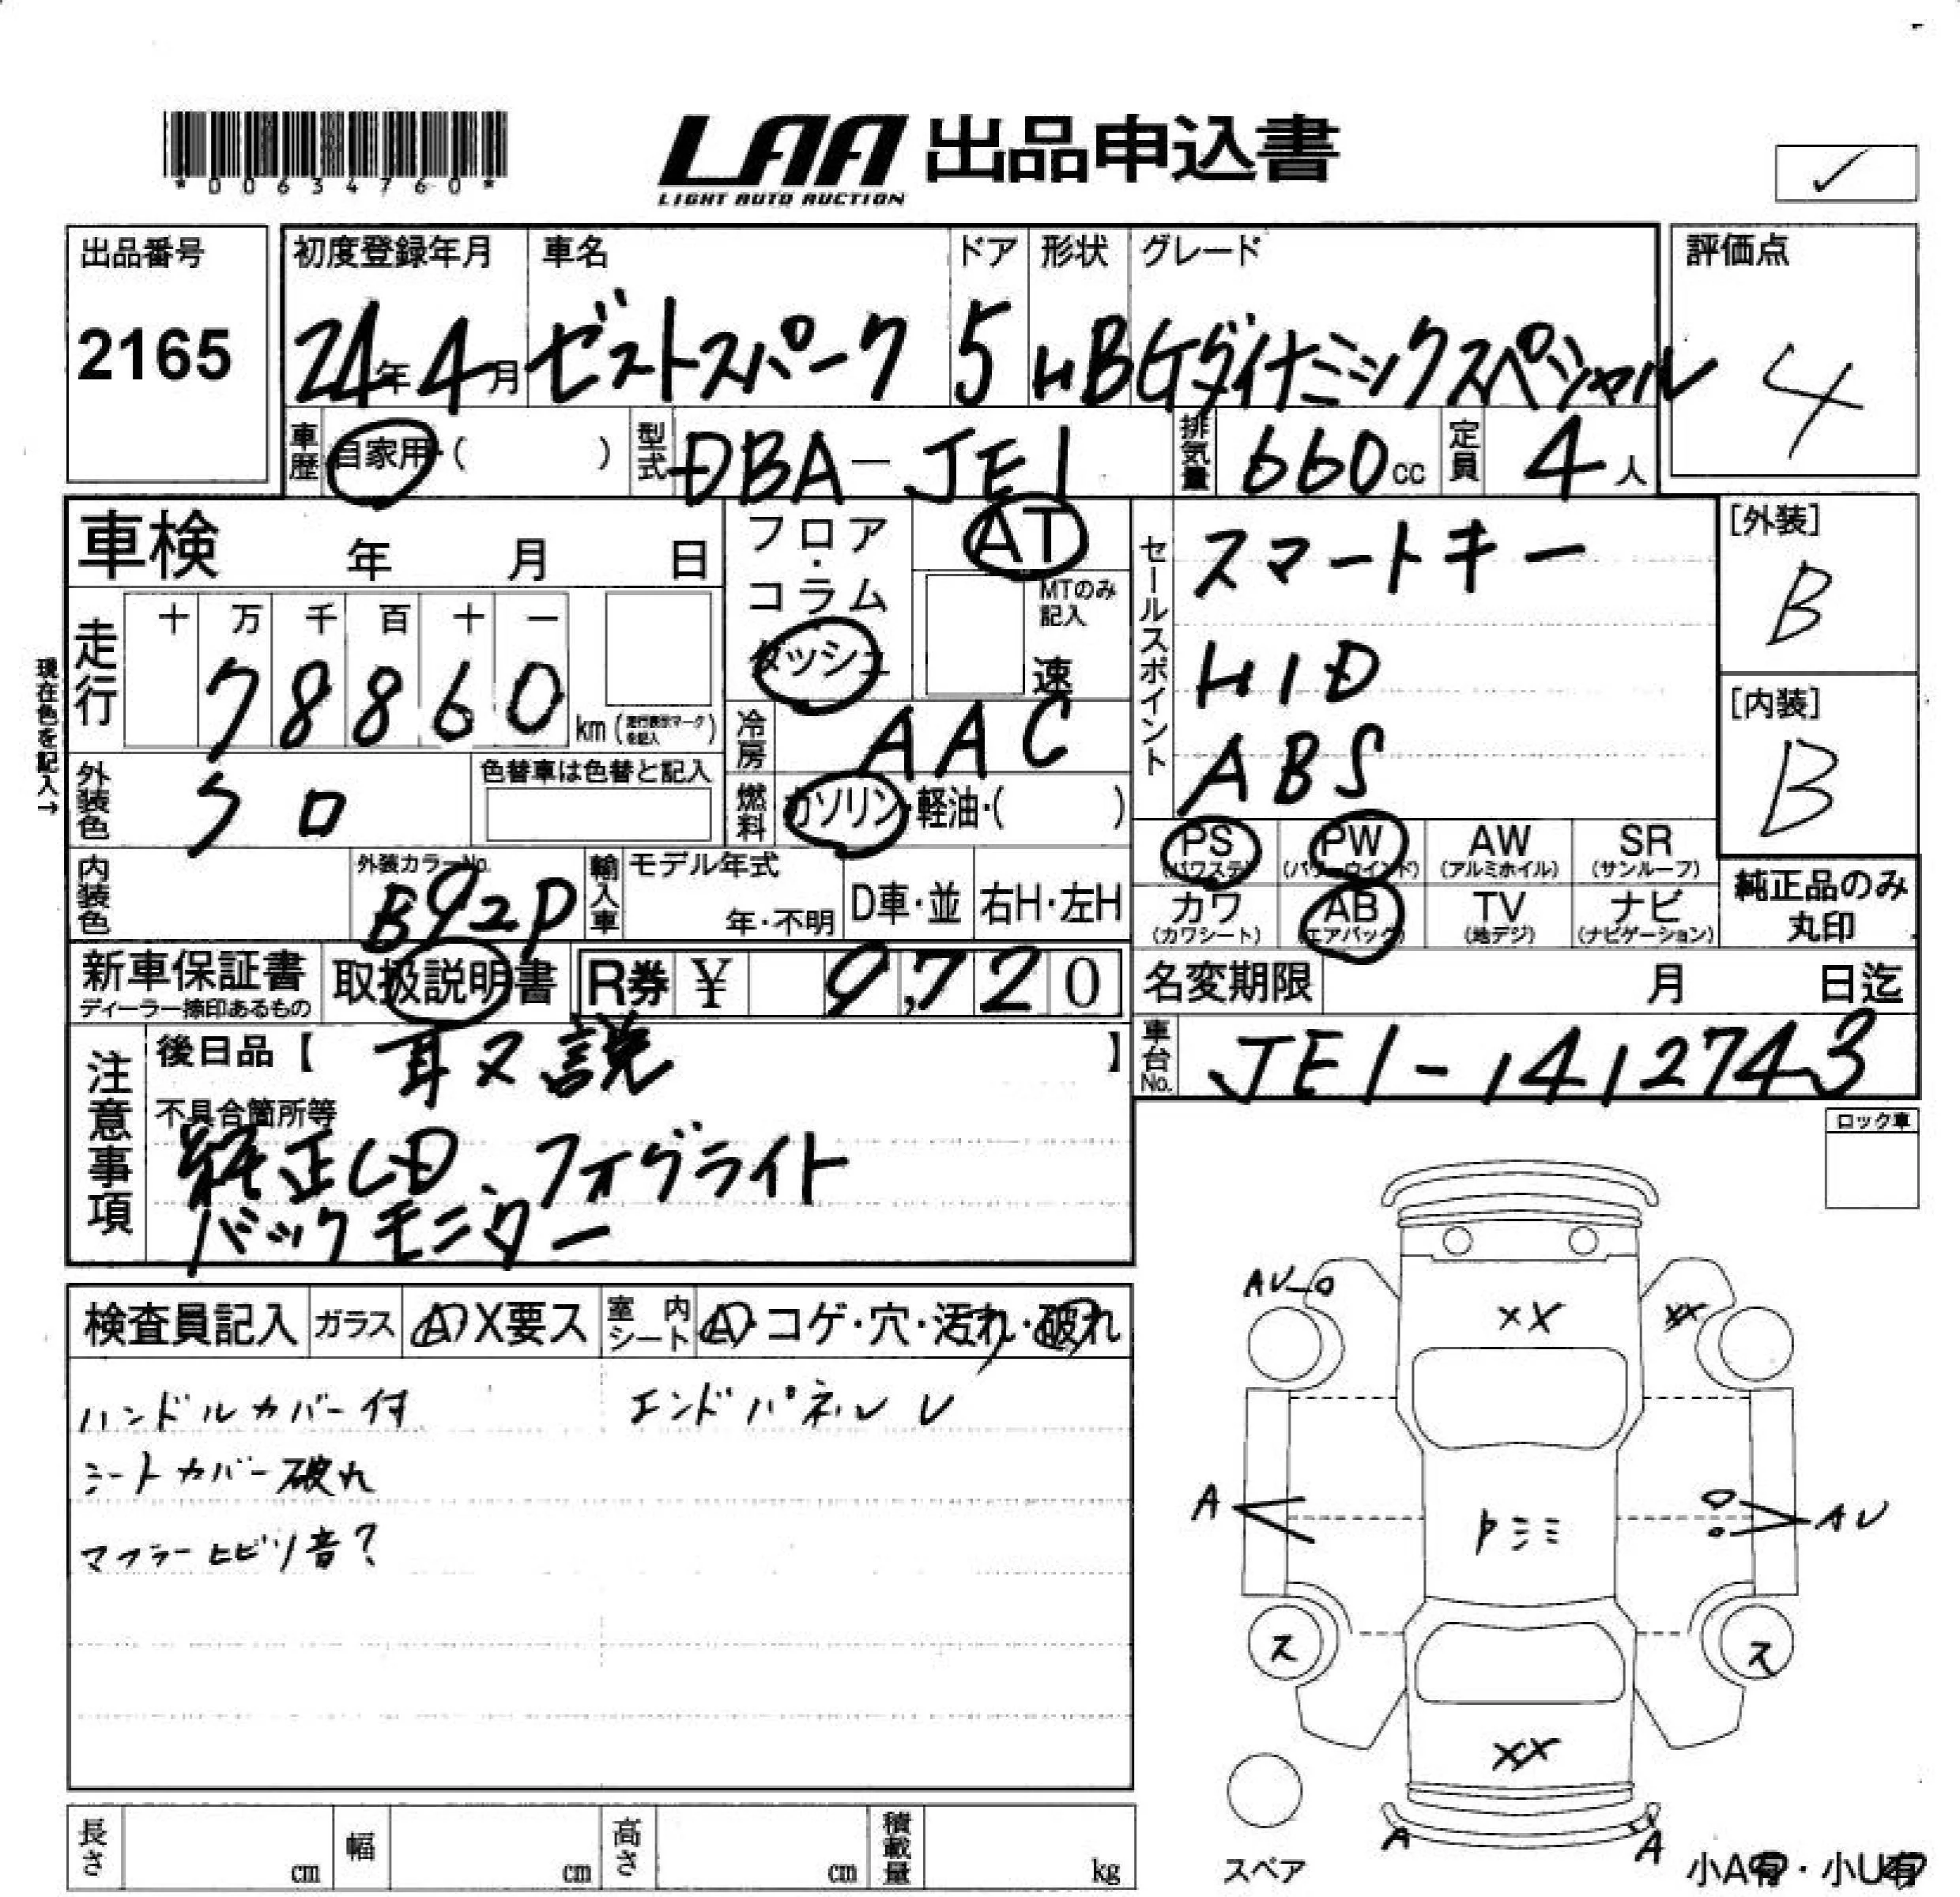 *00634760*
LAA 出品申込書
LIGHT AUTO AUCTION
✓
出品番号
2165
初度登録年月
24年4月
車名
ゼストスパーク
ドア
5
形状
HB
グレード
Gダイナミックスペシャル
評価点
4
車歴 自家用・( )
型式 DBA-JE1
排気量 660cc
定員 4人
車検 年 月 日
フロア・コラム
ダッシュ
AT
MTのみ記入
速
セールスポイント
スマートキー
HID
ABS
[外装]
B
[内装]
B
現在色を記入→
走行
十 万 千 百 十 一
78860 km (走行表示マークを記入)
冷房 AAC
燃料 ガソリン・軽油・( )
外装色 クロ
色替車は色替と記入
内装色
外装カラーNo.
B92P
輸入車
モデル年式
年・不明
D車・並
右H・左H
PS (パワステ)
PW (パワーウインド)
AW (アルミホイル)
SR (サンルーフ)
カワ (カワシート)
AB (エアバック)
TV (地デジ)
ナビ (ナビゲーション)
純正品のみ
丸印
新車保証書
ディーラー捺印あるもの
取扱説明書
R券 ¥ 9,720
名変期限 月 日迄
車台No. JE1-1412743
注意事項
後日品【 取説 】
不具合箇所等
純正CD、フォグライト
バックモニター
ロック車
検査員記入
ガラス A・X要ス
室内シート A・コゲ・穴・汚れ・破れ
ハンドルカバー付
エンドパネル U
シートカバー破れ
マフラーヒビリ音?
AU
XX
XX
A
AU
ス
ス
XX
A
A
スペア
小A有・小U有
長さ cm
幅 cm
高さ cm
積載量 kg